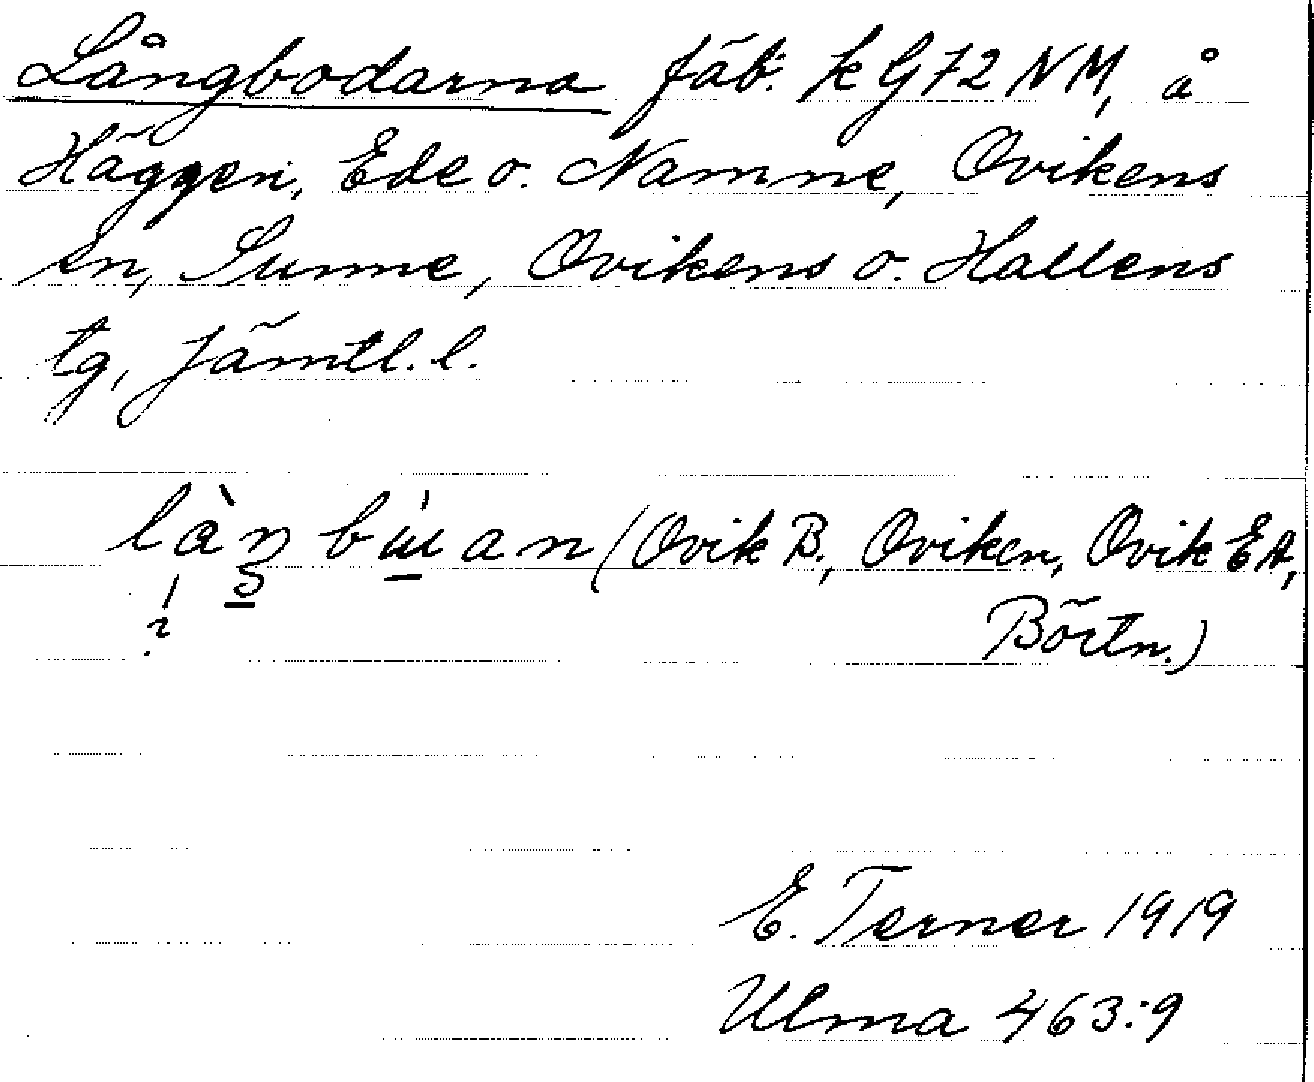 Långbodarna fäb. k G72 NM, å
Häggen, Ede o. Namne, Ovikens
sn, Sunne, Ovikens o. Hallens
tg, Jämtl. l.
(Ovik B., Oviken, Ovik EA,
Börtn.)
E. Terner 1919
Ulma 463:9